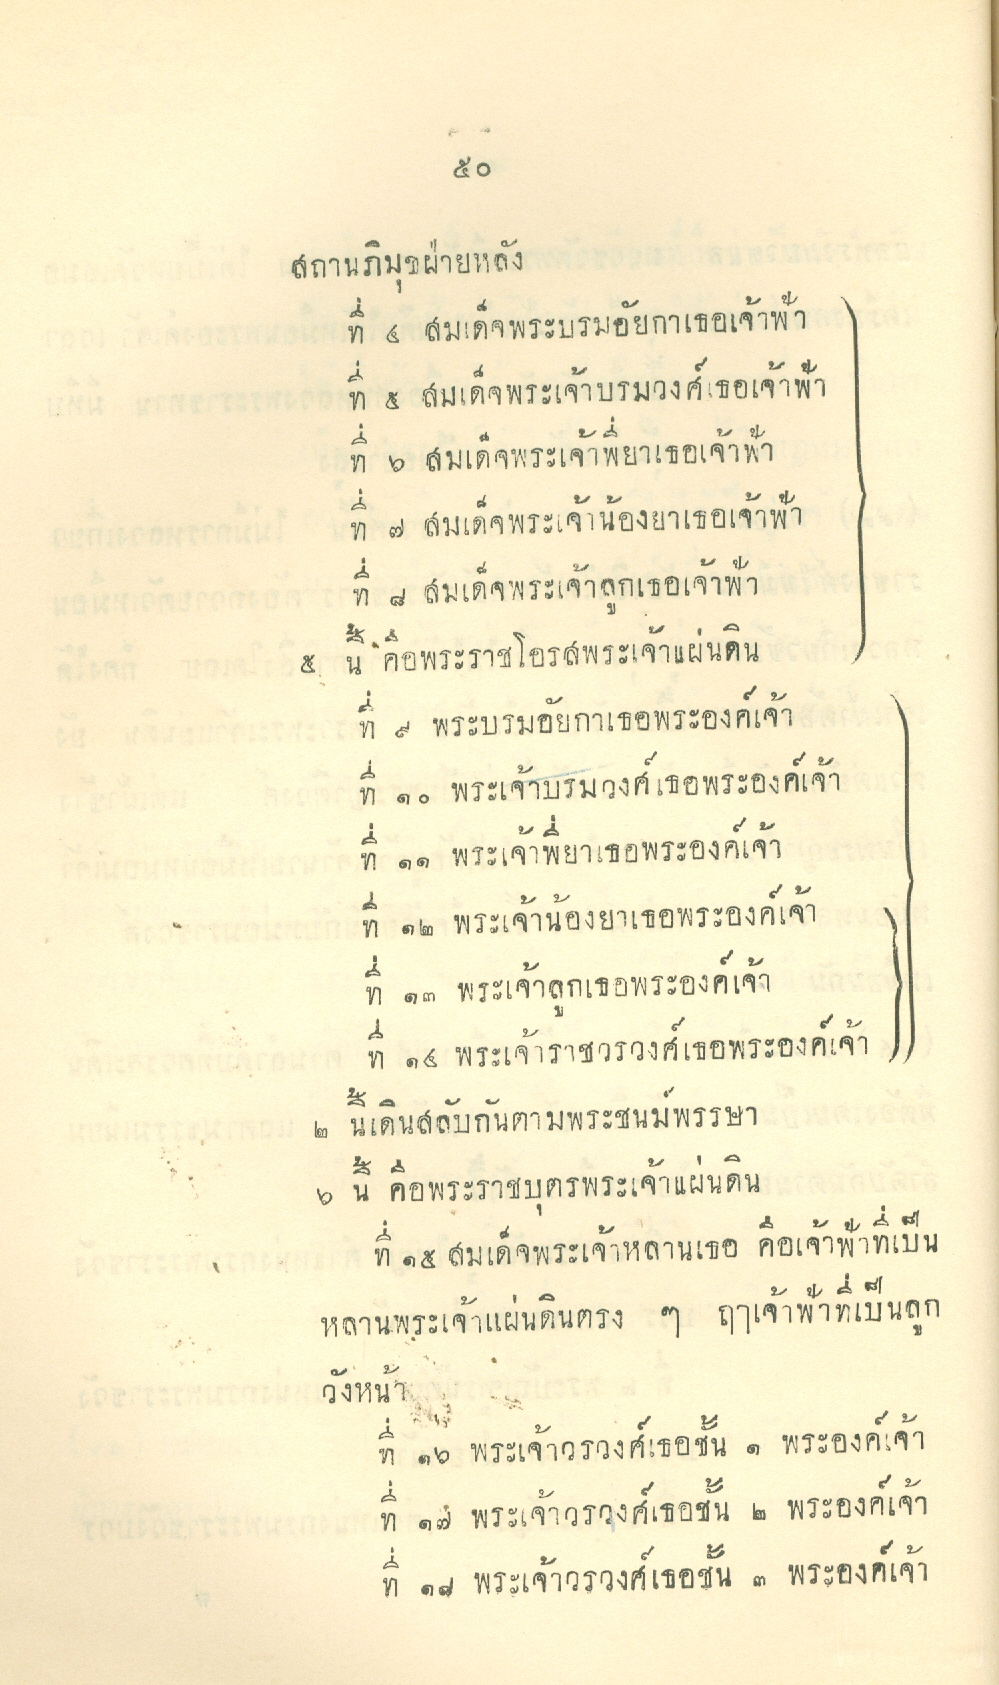 ๕๐
สถานภิมุขฝ่ายหลัง
ที่ ๔ สมเด็จพระบรมอัยกาเธอเจ้าฟ้า
ที่ ๕ สมเด็จพระเจ้าบรมวงศ์เธอเจ้าฟ้า
ที่ ๖ สมเด็จพระเจ้าพี่ยาเธอเจ้าฟ้า
ที่ ๗ สมเด็จพระเจ้าน้องยาเธอเจ้าฟ้า
ที่ ๘ สมเด็จพระเจ้าลูกเธอเจ้าฟ้า
๕ นี้ คือพระราชโอรสพระเจ้าแผ่นดิน
ที่ ๙ พระบรมอัยกาเธอพระองค์เจ้า
ที่ ๑๐ พระเจ้าบรมวงศ์เธอพระองค์เจ้า
ที่ ๑๑ พระเจ้าพี่ยาเธอพระองค์เจ้า
ที่ ๑๒ พระเจ้าน้องยาเธอพระองค์เจ้า
ที่ ๑๓ พระเจ้าลูกเธอพระองค์เจ้า
ที่ ๑๔ พระเจ้าราชวรวงศ์เธอพระองค์เจ้า
๒ นี้เดินสลับกันตามพระชนม์พรรษา
๖ นี้ คือพระราชบุตรพระเจ้าแผ่นดิน
ที่ ๑๕ สมเด็จพระเจ้าหลานเธอ คือเจ้าฟ้าที่เป็น
หลานพระเจ้าแผ่นดินตรง ๆ ฤๅเจ้าฟ้าที่เป็นลูก
วังหน้า
ที่ ๑๖ พระเจ้าวรวงศ์เธอชั้น ๑ พระองค์เจ้า
ที่ ๑๗ พระเจ้าวรวงศ์เธอชั้น ๒ พระองค์เจ้า
ที่ ๑๘ พระเจ้าวรวงศ์เธอชั้น ๓ พระองค์เจ้า